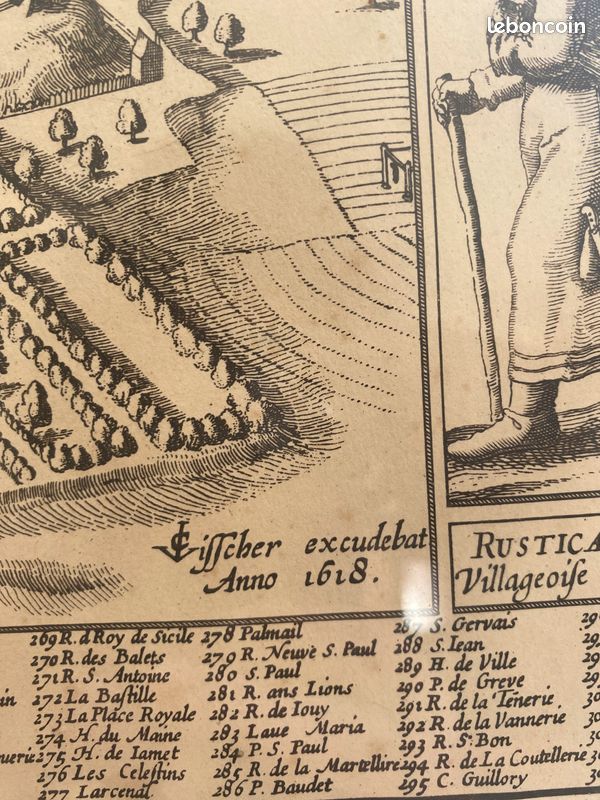 leboncoin
CVisscher excudebat
Anno 1618.
RUSTICA
Villageoise
269 R. d Roy de Sicile
270 R. des Balets
271 R. S. Antoine
272 La Bastille
273 La Place Royale
274 H. du Maine
275 H. de Iamet
276 Les Celestins
277 Larcenal
278 Palmail
279 R. Neuve S. Paul
280 S. Paul
281 R. ans Lions
282 R. de Iouy
283 Laue Maria
284 P. S. Paul
285 R. de la Martellire
286 P. Baudet
287 S. Gervais
288 S. Iean
289 H. de Ville
290 P. de Greve
291 R. de la Tenerie
292 R. de la Vannerie
293 R. S. Bon
294 R. de La Coutellerie
295 C. Guillory